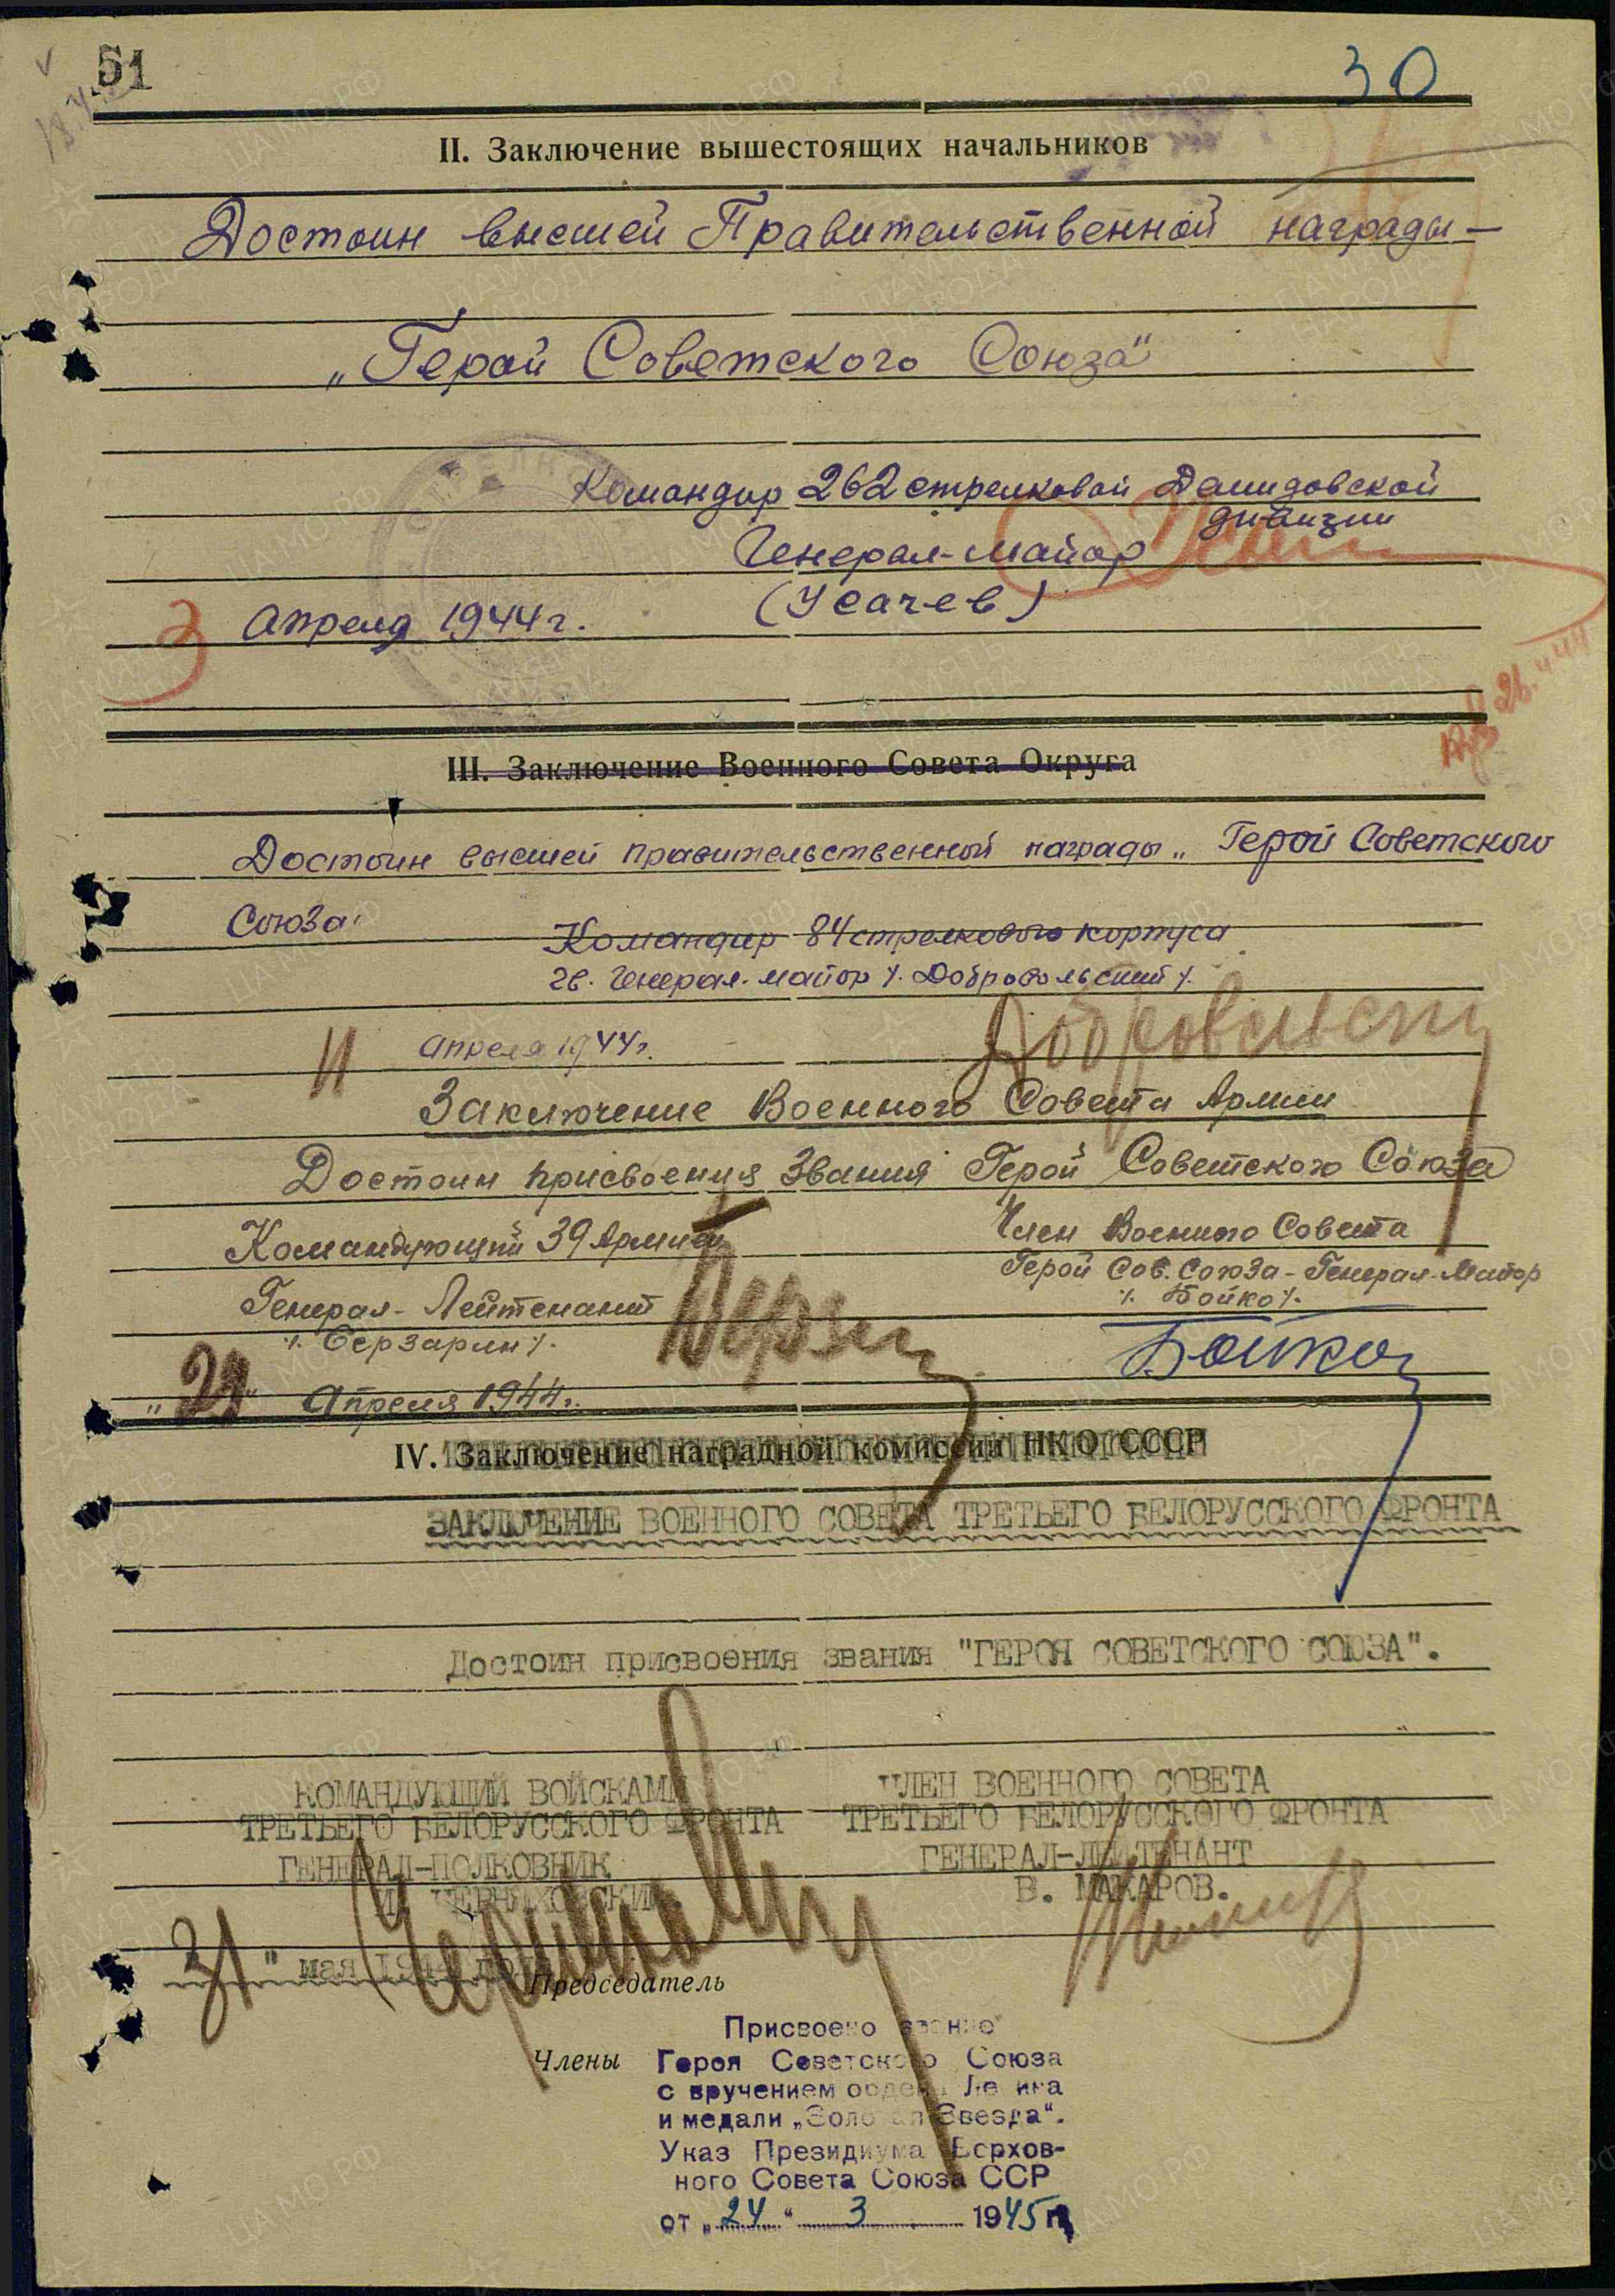 51
30
II. Заключение вышестоящих начальников
Достоин высшей Правительственной награды —
„Герой Советского Союза"
Командир 262 стрелковой Демидовской
дивизии
Генерал-майор
(Усачев)
3 апреля 1944 г.
III. Заключение Военного Совета Округа
Достоин высшей правительственной награды „Герой Советского
Союза"
Командир 84 стрелкового корпуса
гв. Генерал-майор /. Добровольский /.
11 апреля 1944 г.
Заключение Военного Совета Армии
Достоин присвоения Звания Герой Советского Союза
Командующий 39 Армией
Член Военного Совета
Генерал-Лейтенант
Герой Сов. Союза - Генерал-Майор
/. Берзарин /.
/. Бойко /.
Бойко
апреля 1944 г.
IV. Заключение наградной комиссии НКО СССР
ЗАКЛЮЧЕНИЕ ВОЕННОГО СОВЕТА ТРЕТЬЕГО БЕЛОРУССКОГО ФРОНТА
Достоин присвоения звания "ГЕРОЯ СОВЕТСКОГО СОЮЗА".
КОМАНДУЮЩИЙ ВОЙСКАМИ
ТРЕТЬЕГО БЕЛОРУССКОГО ФРОНТА
ГЕНЕРАЛ-ПОЛКОВНИК
И. ЧЕРНЯХОВСКИЙ
ЧЛЕН ВОЕННОГО СОВЕТА
ТРЕТЬЕГО БЕЛОРУССКОГО ФРОНТА
ГЕНЕРАЛ-ЛЕЙТЕНАНТ
В. МАКАРОВ.
31 " мая 1944 го
Председатель
Члены
Присвоено звание
Героя Советского Союза
с вручением ордена Ленина
и медали „Золотая Звезда".
Указ Президиума Верхов-
ного Совета Союза ССР
от „24" 3 1945 г.